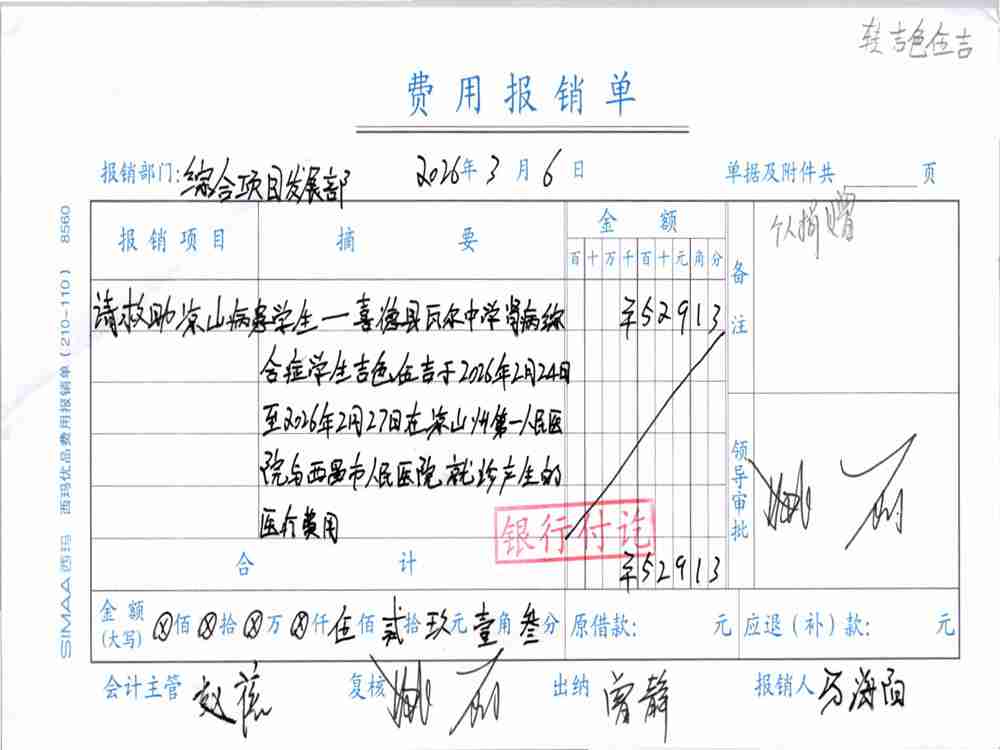 转吉色伍吉
费用报销单
报销部门:综合项目发展部 2026年3月6日 单据及附件共 页
报销项目 摘要 金额 备注 个人捐赠
百十万千百十元角分
请救助凉山病患学生一喜德县瓦尔中学肾病综 ¥52913
合症学生吉色伍吉于2026年2月24日
至2026年2月27日在凉山州第一人民医
院与西昌市人民医院就诊产生的
医疗费用
领导审批
银行付讫
合计 ¥52913
金额(大写) ⊗佰⊗拾⊗万⊗仟伍佰贰拾玖元壹角叁分 原借款: 元 应退(补)款: 元
会计主管 复核 出纳 曾静 报销人 马海阳
SIMAA西玛 西玛优品费用报销单(210-110) 8560